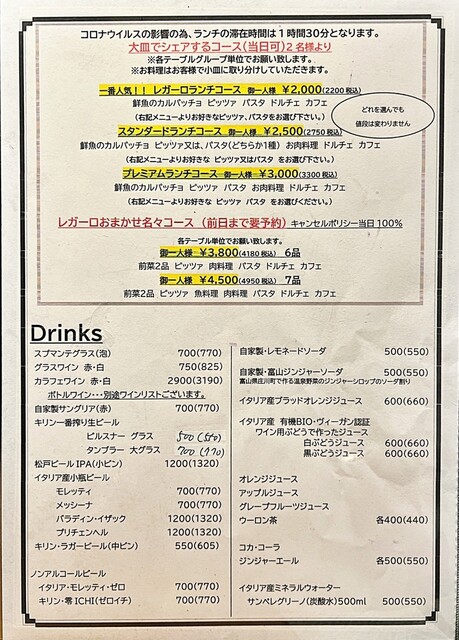 コロナウイルスの影響の為、ランチの滞在時間は1時間30分となります。
大皿でシェアするコース(当日可)2名様より
※各テーブルグループ単位でお願い致します。
※お料理はお客様で小皿に取り分けしていただきます。
一番人気!! レガーロランチコース 御一人様 ¥2,000(2200 税込)
鮮魚のカルパッチョ ピッツァ パスタ ドルチェ カフェ
(右記メニューよりお好きなピッツァ、パスタをお選び下さい。)
どれを選んでも
値段は変わりません
スタンダードランチコース 御一人様 ¥2,500(2750 税込)
鮮魚のカルパッチョ ピッツァ又は、パスタ(どちらか1種) お肉料理 ドルチェ カフェ
(右記メニューよりお好きな ピッツァ又はパスタ をお選び下さい。)
プレミアムランチコース 御一人様 ¥3,000(3300 税込)
鮮魚のカルパッチョ ピッツァ パスタ お肉料理 ドルチェ カフェ
(右記メニューよりお好きな ピッツァ パスタ をお選びください。)
レガーロおまかせ名々コース (前日まで要予約) キャンセルポリシー当日100%
各テーブル単位でお願い致します。
御一人様 ¥3,800(4180 税込) 6品
前菜2品 ピッツァ 肉料理 パスタ ドルチェ カフェ
御一人様 ¥4,500(4950 税込) 7品
前菜2品 ピッツァ 魚料理 肉料理 パスタ ドルチェ カフェ
Drinks
スプマンテグラス(泡) 700(770)
グラスワイン 赤・白 750(825)
カラフェワイン 赤・白 2900(3190)
ボトルワイン・・・別途ワインリストございます。
自家製サングリア(赤) 700(770)
キリン一番搾り生ビール
ピルスナー グラス 500(550)
タンブラー 大グラス 700(770)
松戸ビールIPA(小ビン) 1200(1320)
イタリア産小瓶ビール
モレッティ 700(770)
メッシーナ 700(770)
バラディン・イザック 1200(1320)
プリチェンヘル 1200(1320)
キリン・ラガービール(中ビン) 550(605)
ノンアルコールビール
イタリア・モレッティ・ゼロ 700(770)
キリン・零ICHI(ゼロイチ) 700(770)
自家製・レモネードソーダ 500(550)
自家製・富山ジンジャーソーダ 500(550)
富山県庄川町で作る温泉野菜のジンジャーシロップのソーダ割り
イタリア産ブラッドオレンジジュース 600(660)
イタリア産 有機BIO・ヴィーガン認証
ワイン用ぶどうで作ったジュース
白ぶどうジュース 600(660)
黒ぶどうジュース 600(660)
オレンジジュース
アップルジュース
グレープフルーツジュース
ウーロン茶 各400(440)
コカ・コーラ
ジンジャーエール 各500(550)
イタリア産ミネラルウォーター
サンペレグリーノ(炭酸水)500ml 500(550)